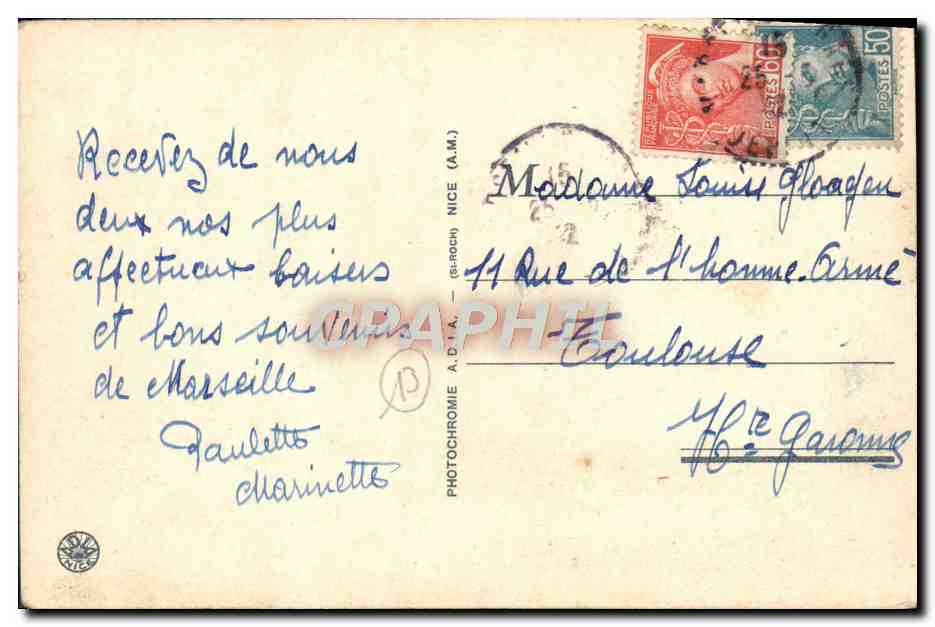 Recevez de nous
deux nos plus
affectueux baisers
et bons souvenirs
de Marseille
Paulette
Marinette
13
ADIA
NICE
PHOTOCHROMIE A.D.I.A. — (St-ROCH) NICE (A.M.)
60
POSTES
50
POSTES
15
25
Madame Louise Gloagen
11 Rue de l'homme-Armé
Toulouse
Hte Garonne
CPAPHIL